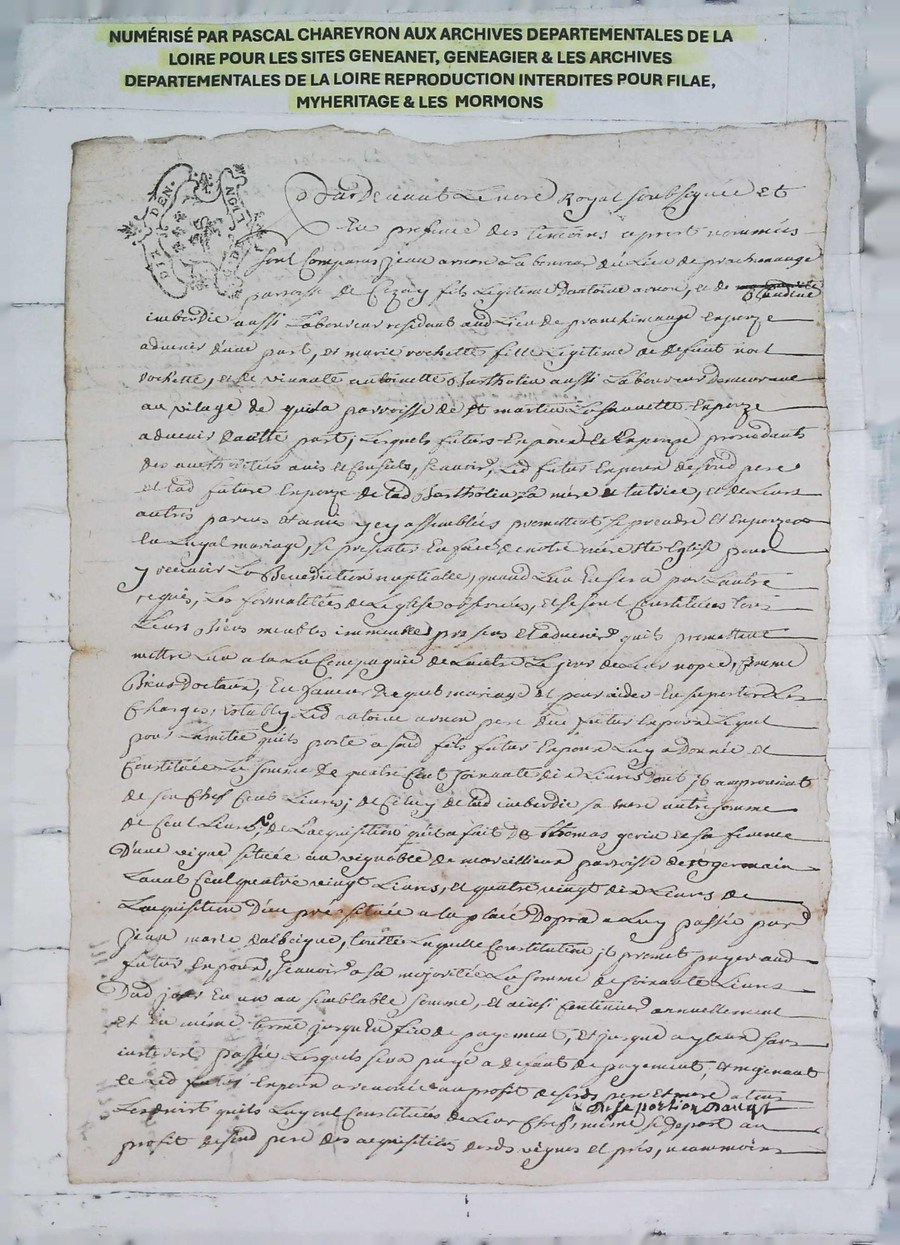 NUMÉRISÉ PAR PASCAL CHAREYRON AUX ARCHIVES DEPARTEMENTALES DE LA
LOIRE POUR LES SITES GENEANET, GENEAGIER & LES ARCHIVES
DEPARTEMENTALES DE LA LOIRE REPRODUCTION INTERDITES POUR FILAE,
MYHERITAGE & LES MORMONS
Pardevant Le nore Royal soubsigné Et
En presence des temoins apres nommés
sont Comparus jean arnon Laboureur du Lieu de
parroisse de Cezay fils Legitime dantoine arnon, et de
Claudine
imberdie aussi Laboureur residant aud Lieu de Enpoze
advenir d'une part, et marie rochette fille Legitime de defunt noel
rochette, et de vivante antoinette Bartholin aussi Laboureur demeurant
au vilage de parroisse de St martin La sauvetté Enpoze
advenir dautre part, Lesquels futurs Enpoux et Enpoze procedants
des authorités avis et conseils, sçavoir, Led futur Enpoux de sond pere
et lad future Enpoze de lad Bartholin sa mère et tutrice, et de Leurs
autres parens et amis y assemblés promettent se prendre et Enpozer
En Legal mariage, se presenter En face de notre mere Ste Eglise pour
y recevoir La Benediction nuptialle, quand Lun En sera par Lautre
requis, Les formalitées de L'eglise observées, et se sont Constituées tous
Leurs Biens meubles immeubles presens et advenir quils promettent
mettre Lun a la Compagnie de Lautre Le jour de Leur nopce, Comme
Biens dotaux, En faveur duquel mariage et pour aider En suporter Les
Charges, Led antoine arnon pere dud futur Enpoux Lequel
pour Lamitié quil porte a sond fils futur Enpoux Luy a Donnée et
Constituée La somme de quatre Cent soixante dix Livres dont il
de son Chef Cent Livres, de Celuy de lad imberdie sa mere autre somme
de Cent Livres, de Lacquisition quil a fait de Thomas gerin et sa femme
D'une vigne située au vignoble de marcillieux parroisse de St germain
Laval Cent quatre vingt Livres, et quatre vingt dix Livres de
Lacquisition d'un pré située a la place a Luy passée par
jean marie Dalbeigue, toutte Laquelle Constitution il promet payer aud
futur Enpoux, sçavoir a sa majoritée La somme de soixante Livres
Dud jour En un an semblable somme, et ainsi Continuer annuellement
et En même terme jusqu'En fin de payement, et jusque sans
interest passée Lesquels sera payé a defaut de payement, et
Led futur Enpoux a renoncé au profit de ses pere et mere a tous
Les droit quils Luy ont Constitués de Leur Chef, même se depart au
profit de sond pere des acquisitions desds vignes et prés, neanmoins